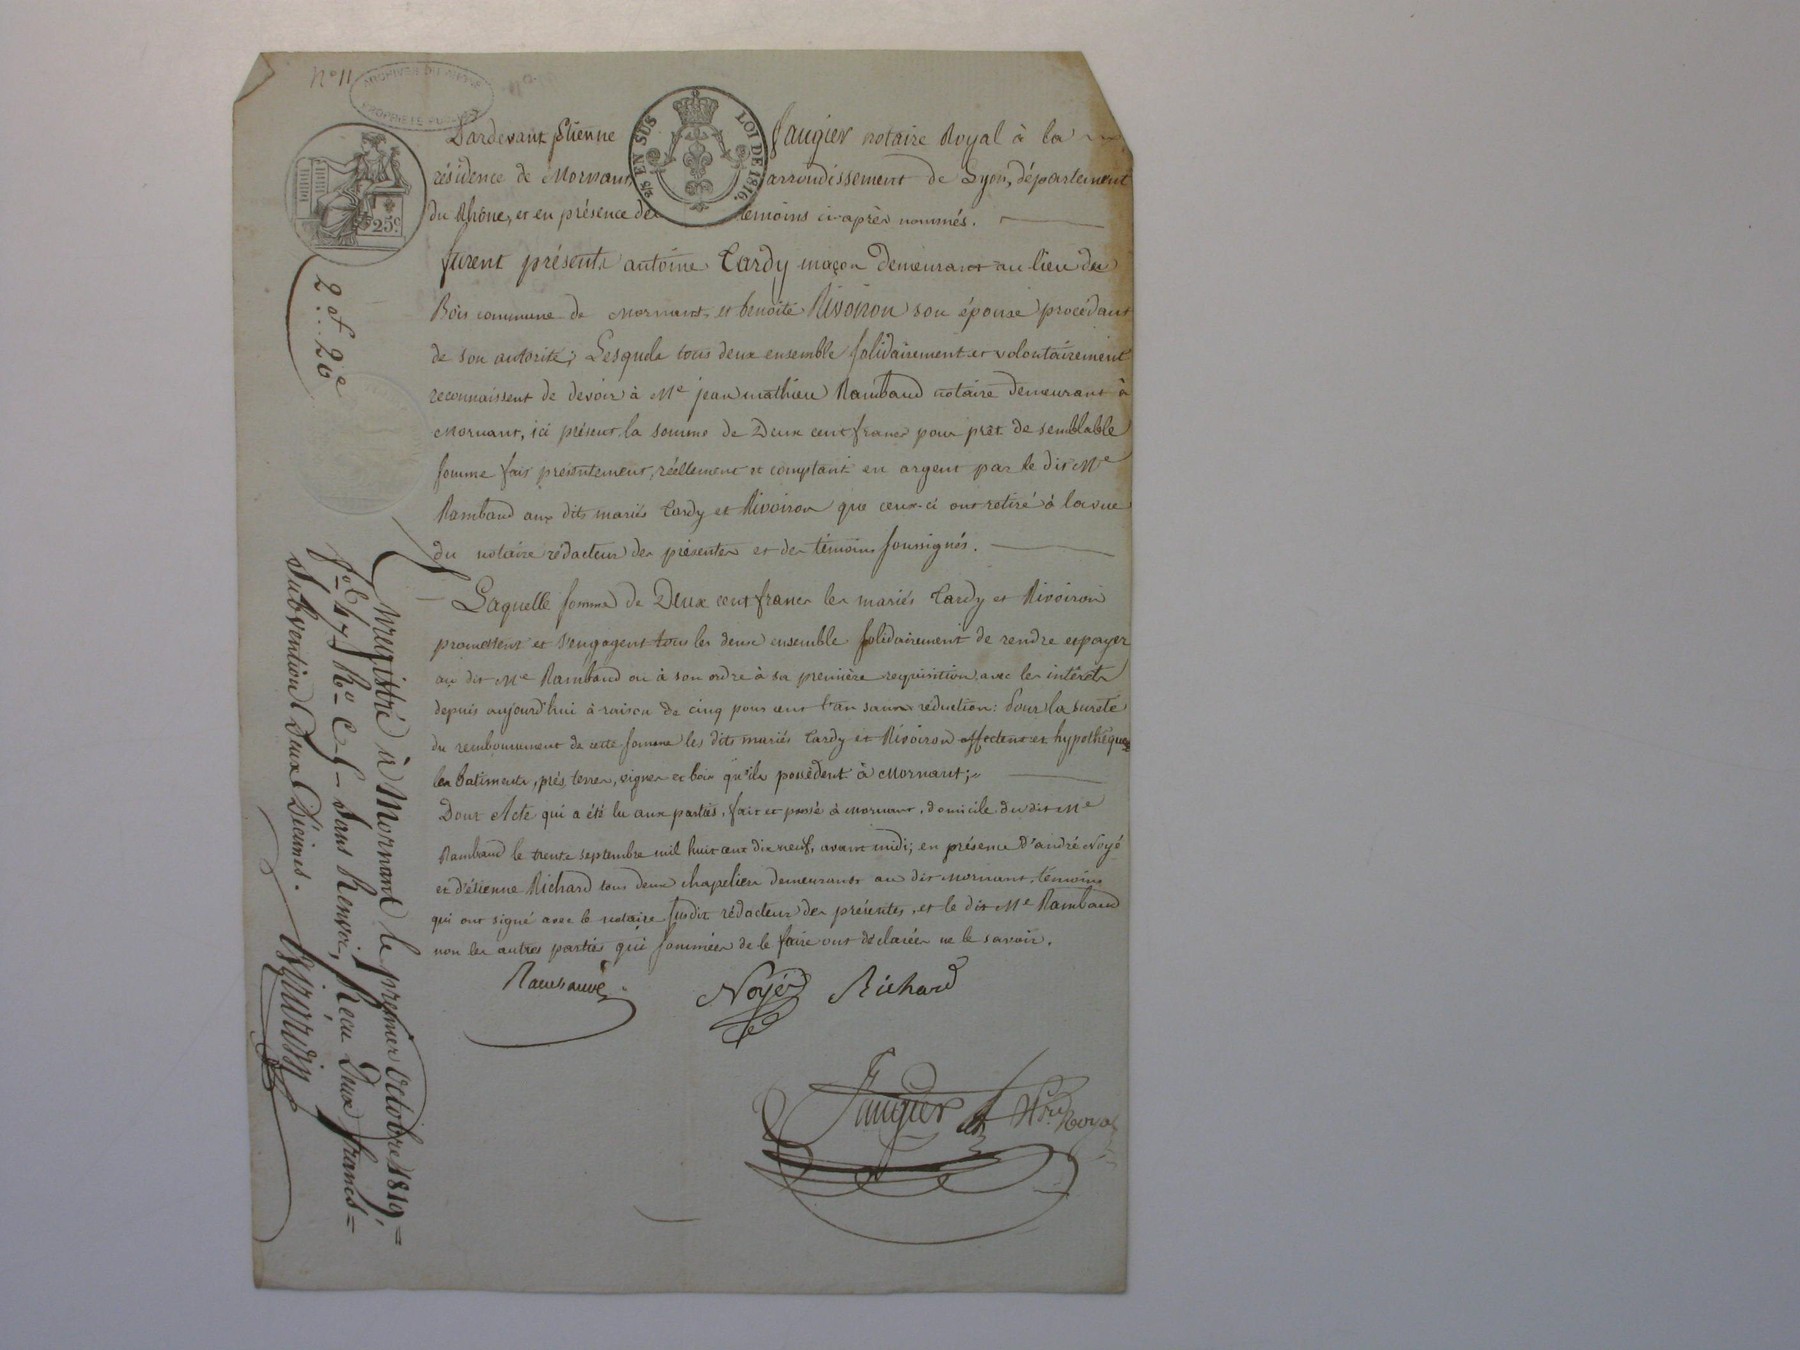 N° 11
ARCHIVES DU RHÔNE
PROPRIÉTÉ PUBLIQUE
25 EN SUS
LOI DE 1816.
25c
Pardevant Etienne faugier notaire Royal à la
résidence de Mornant, arrondissement de Lyon, département
du Rhône, et en présence des témoins ci-après nommés.
furent présents antoine Tardy maçon demeurant au lieu du
Bois commune de Mornant, et benoite Rivoiron son épouse procédant
de son autorité; Lesquels tous deux ensemble solidairement et volontairement
reconnaissent de devoir à Me jean mathieu Rambaud notaire demeurant à
Mornant, ici présent, la somme de Deux cent francs pour prêt de semblable
somme fait présentement, réellement et comptant en argent par le dit Me
Rambaud aux dits mariés Tardy et Rivoiron que ceux-ci ont retiré à la vue
du notaire rédacteur des présentes et des témoins soussignés.
Laquelle somme de Deux cent francs les mariés Tardy et Rivoiron
promettent et s'engagent tous les deux ensemble solidairement de rendre et payer
au dit Me Rambaud ou à son ordre à sa première requisition avec les intérêts
depuis aujourd'hui à raison de cinq pour cent l'an sans réduction: Pour la sureté
du remboursement de cette somme les dits mariés Tardy et Rivoiron affectent et hypothèquent
les batiments, prés, terres, vignes et bois qu'ils possèdent à Mornant;
Dont Acte qui a été lu aux parties, fait et passé à Mornant, domicile du dit Me
Rambaud le trente septembre mil huit cent dix neuf, avant midi; en présence d'andré Noyé
et d'étienne Richard tous deux chapeliers demeurants au dit Mornant, témoins
qui ont signé avec le notaire susdit rédacteur des présentes, et le dit Me Rambaud
non les autres parties qui sommées de le faire ont déclarées ne le savoir.
Noyé Richard
faugier Nre Royal
2f.. 20c
Enregistré à Mornant le premier Octobre 1819,
fol 47 Ro C 5 Sans Renvoi, Reçu Deux francs
Subvention Deux Décimes.